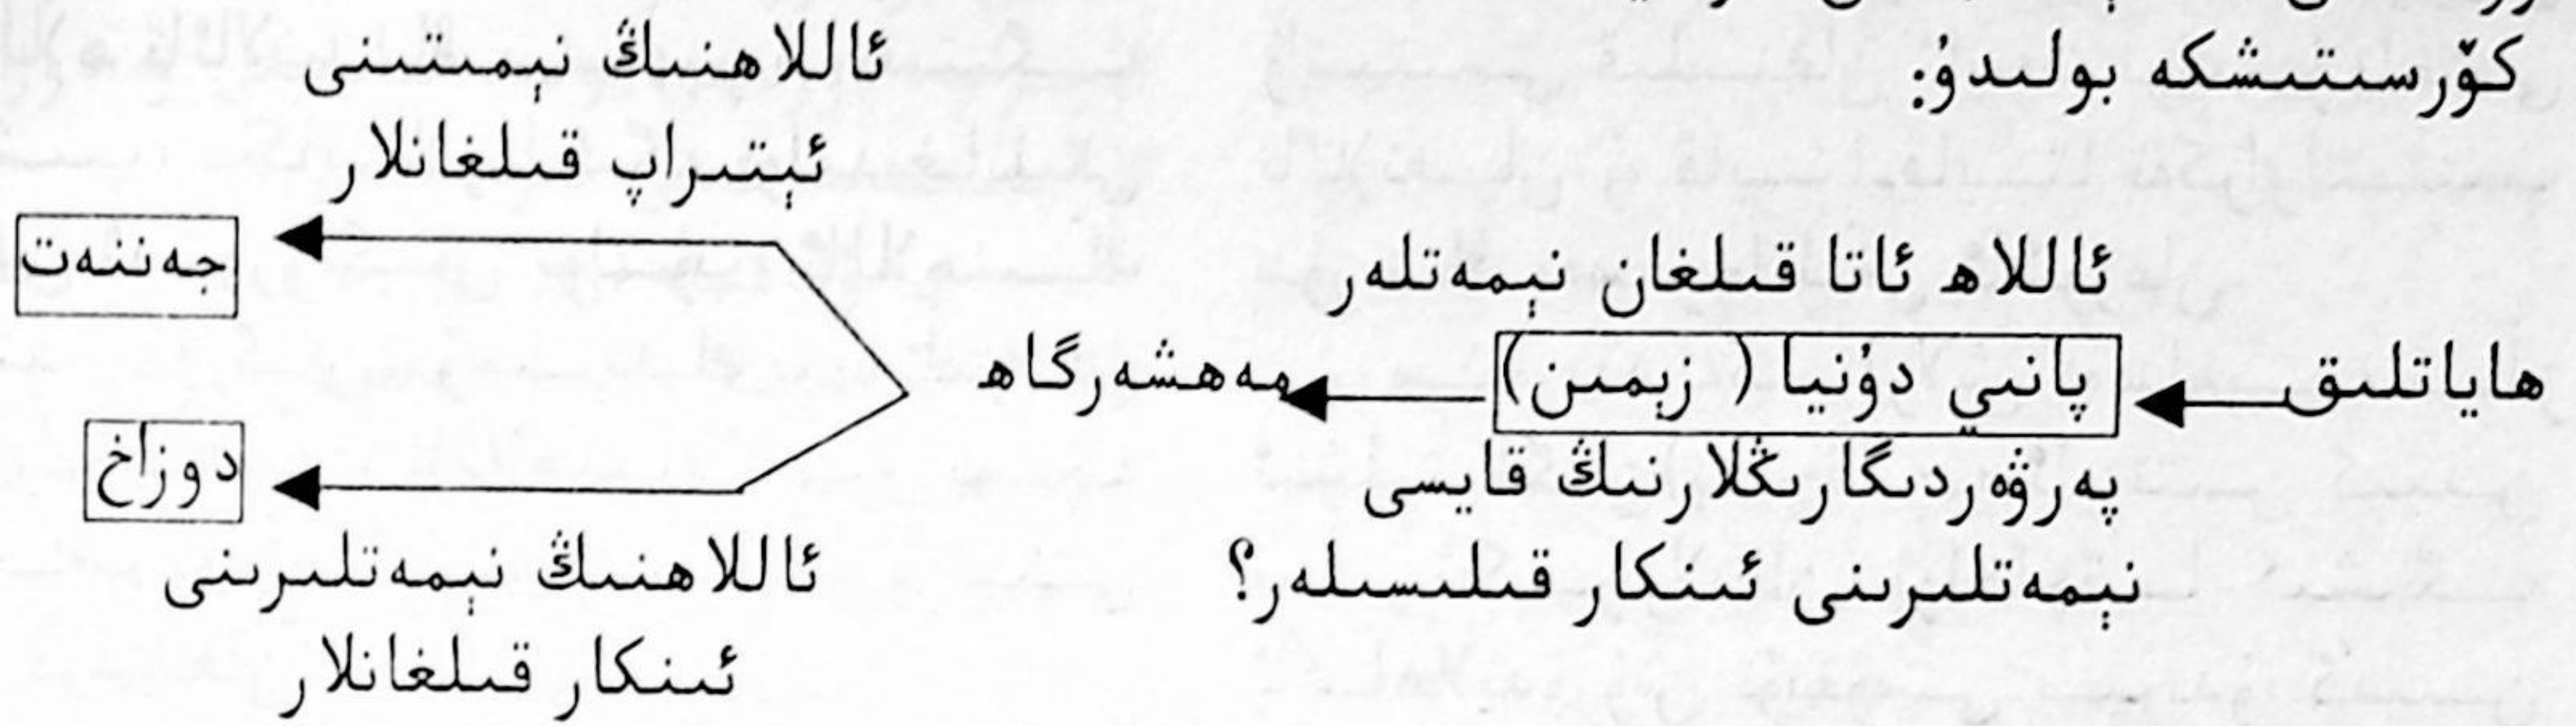 كۆرسىتىشكە بولىدۇ:
ئاللاھ ئاتا قىلغان نېمەتلەر
ھاياتلىق
پانىي دۇنيا ( زېمىن)
پەرۋەردىگارىڭلارنىڭ قايسى
نېمەتلىرىنى ئىنكار قىلىسىلەر؟
مەھشەرگاھ
ئاللاھنىڭ نېمىتىنى
ئېتىراپ قىلغانلار
جەننەت
دوزاخ
ئاللاھنىڭ نېمەتلىرىنى
ئىنكار قىلغانلار